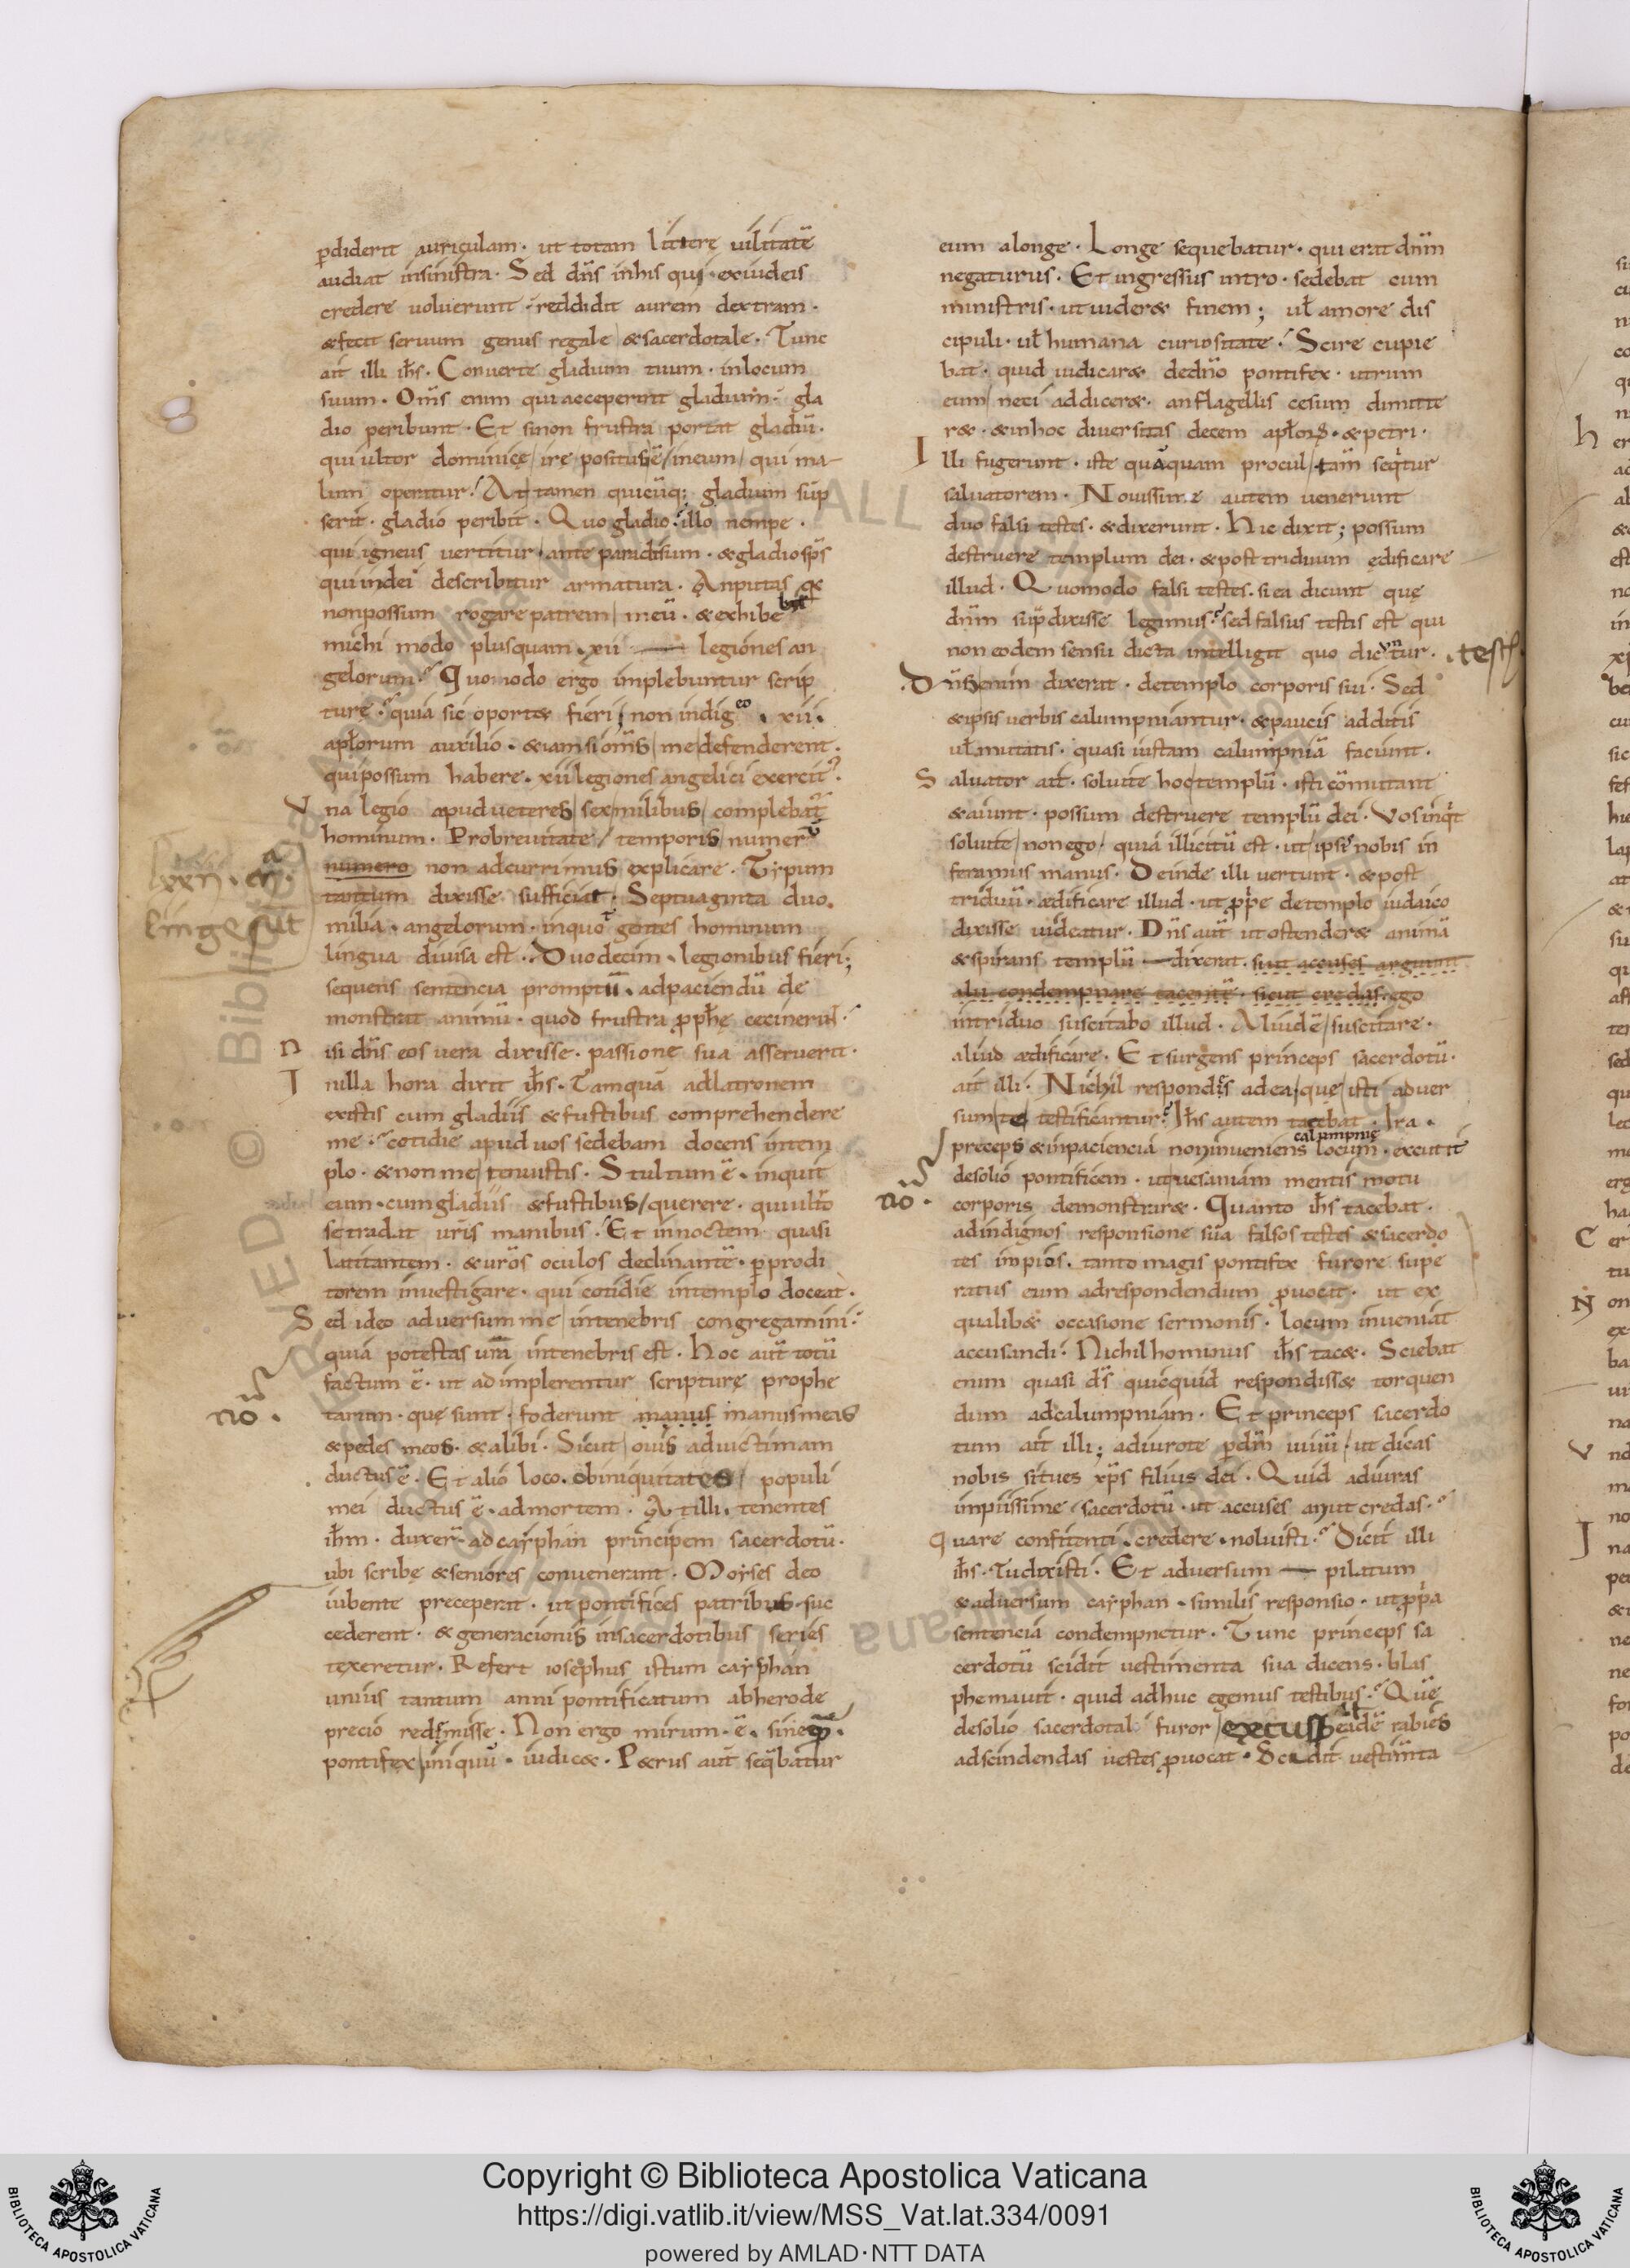 p̄diderit auriculam · ut totam litterę uilitatē
audiat insinistra · Sed dn̄s inhis qui · exiudeis
credere uoluerunt · reddidit aurem dextram ·
&fecit seruum genus regale &sacerdotale · Tunc
ait illi ih̄s · Conuerte gladium tuum · inlocum
suum · Om̄s enim quiacceperint gladium · gla
dio peribunt · Et sinon frustra portat gladiū ·
qui ultor dominicę irę positus ē ineum qui ma-
lum operatur · At tamen quicūq; gladium sūp
serit · gladio peribit · Quo gladio? illo nempe ·
qui igneus uertitur · ante paradisum · &gladio sp̄s
qui indei describitur armatura · Anputas qꝫ
nonpossum rogare patrem meū · &exhibebit
michi modo plusquam · xii legiones an
gelorum? Quomodo ergo implebuntur scrip
turę? quia sic oport& fieri non indigeo · xii ·
apl̄orum auxilio · &iam si om̄s me defenderent ·
qui possum habere · xii legiones angelici exercit' ·
Vna legio apud ueteres sex milibus complebat̄
hominum · Pro breuitate temporis numerū
numero non adcurrimus explicare · Typum
tantum dixisse sufficiat · Septuaginta duo ·
milia · angelorum · inquot gentes hominum
lingua diuisa est · Duodecim · legionibus fieri;
sequens sentencia promptū · adpaciendū de
monstrat animū · quod frustra p̄ph̄ę cecinerint ·
Nisi dn̄s eos uera dixisse · passione sua asseruerit ·
In illa hora dixit ih̄s · Tamquā adlatronem
existis cum gladiis &fustibus comprehendere
me · cotidie apud uos sedebam docens intem
plo · &nonme tenuistis · Stultum ē · inquit
eum · cumgladiis &fustibus querere · qui ult̄o
setradat ur̄is manibus · Et innoctem quasi
latitantem · &ur̄os oculos declinantē · p̄prodi
torem inuestigare · qui cotidie intemplo doceat ·
Sed ideo aduersum me intenebris congregamini ·
quia potestas ur̄a intenebris est · Hoc aut̄ totū
factum ē · ut adimplerentur scripturę prophe
tarum · quę sunt · foderunt manus manus meas
&pedes meos · &alibi · Sicut ouis aduictimam
ductus ē · Et alio loco · obiniquitates populi
mei ductus ē · admortem · At illi · tenentes
ih̄m · duxer̄ · ad cayphan principem sacerdotū ·
ubi scribę &seniores conuenerant · Moyses deo
iubente preceperat · ut pontifices patribus suc
cederent · &generacionis insacerdotibus series
texeretur · Refert iosephus istum cayphan
unius tantum anni pontificatum abherode
precio redemisse · Non ergo mirum · ē · sineq̄ ·
pontifex iniquū · iudic& · P&rus aut̄ seq̄batur
lxxii · ena
linge sūt
no ·
eum alonge · Longe sequebatur · qui erat dn̄m
negaturus · Et ingressus intro · sedebat cum
ministris · ut uider& finem; ul̄ amore dis
cipuli · ul̄ humana curiositate · Scire cupie
bat · quid iudicar& dedn̄o pontifex · utrum
eum neci addicer& · anflagellis cesum dimitte
r& · &inhoc diuersitas decem apl̄oꝝ · &petri ·
Illi fugerunt · iste quāquam procul tam̄ seq̄tur
saluatorem · Nouissime autem uenerunt
duo falsi testes · &dixerunt · Hic dixit; possum
destruere templum dei · &post triduum ędificare
illud · Quomodo falsi testes · si ea dicunt quę
dn̄m sup̄dixisse legimus? sed falsus testis est qui
non eodem sensu dicta intelligit quo dicuntur ·
Dn̄s enim dixerat · detemplo corporis sui · Sed
&ipsis uerbis calumpniantur · &paucis additis
ul̄ mutatis · quasi iustam calumpniā faciunt ·
Saluator ait · soluite hoc templū · isti cōmutant
&aiunt · possum destruere templū dei · Vos inq̄t
soluite non ego · quia illicitū est · ut ipsi nobis in
feramus manus · Deinde illi uertunt · &post
triduū · ædificare illud · ut p̄p̄e detemplo iudaico
dixisse uideatur · Dn̄s aut̄ ut ostender& animā
&spirans templū dixerat · sint accuses arguunt
alii condempnare tacentē · sicut credas · ego
intriduo suscitabo illud · Aliud ē suscitare ·
aliud ædificare · Et surgens princeps sacerdotū ·
ait illi · Nichil respondes adea quę isti aduer
sum te testificantur? Ih̄s autem tacebat · Ira ·
preceps &inpaciencia noninueniens calumpnię locum · excutit
desolio pontificem · ut uesaniam mentis motu
corporis demonstrar& · Quanto ih̄s tacebat ·
adindignos responsione sua falsos testes &sacerdo
tes impios · tanto magis pontifex furore supe
ratus eum adrespondendum p̄uocat · ut ex
qualib& occasione sermonis · locum inueniat
accusandi · Nichilhominus ih̄s tac& · Sciebat
enim quasi ds̄ quicquid respondiss& torquen
dum adcalumpniam · Et princeps sacerdo
tum ait illi; adiurote p̄dm̄ uiuū · ut dicas
nobis situes xp̄s filius dei · Quid adiuras
impiissime sacerdotū · ut accuses anut credas ·
Quare confitenti · credere · noluisti · Dicit illi
ih̄s · Tudixisti · Et aduersum pilatum
&aduersum cayphan · similis responsio · ut p̄p̄a
sentencia condempnetur · Tunc princeps sa
cerdotū scidit uestimenta sua dicens · blas
phemauit · quid adhuc egemus testibus? Quē
desolio sacerdotali furor excusserat eadē rabies
adscindendas uestes p̄uocat · Scidit uestim̄ta
no ·
Copyright © Biblioteca Apostolica Vaticana
https://digi.vatlib.it/view/MSS_Vat.lat.334/0091
powered by AMLAD·NTT DATA
BIBLIOTECA APOSTOLICA VATICANA
BIBLIOTECA APOSTOLICA VATICANA